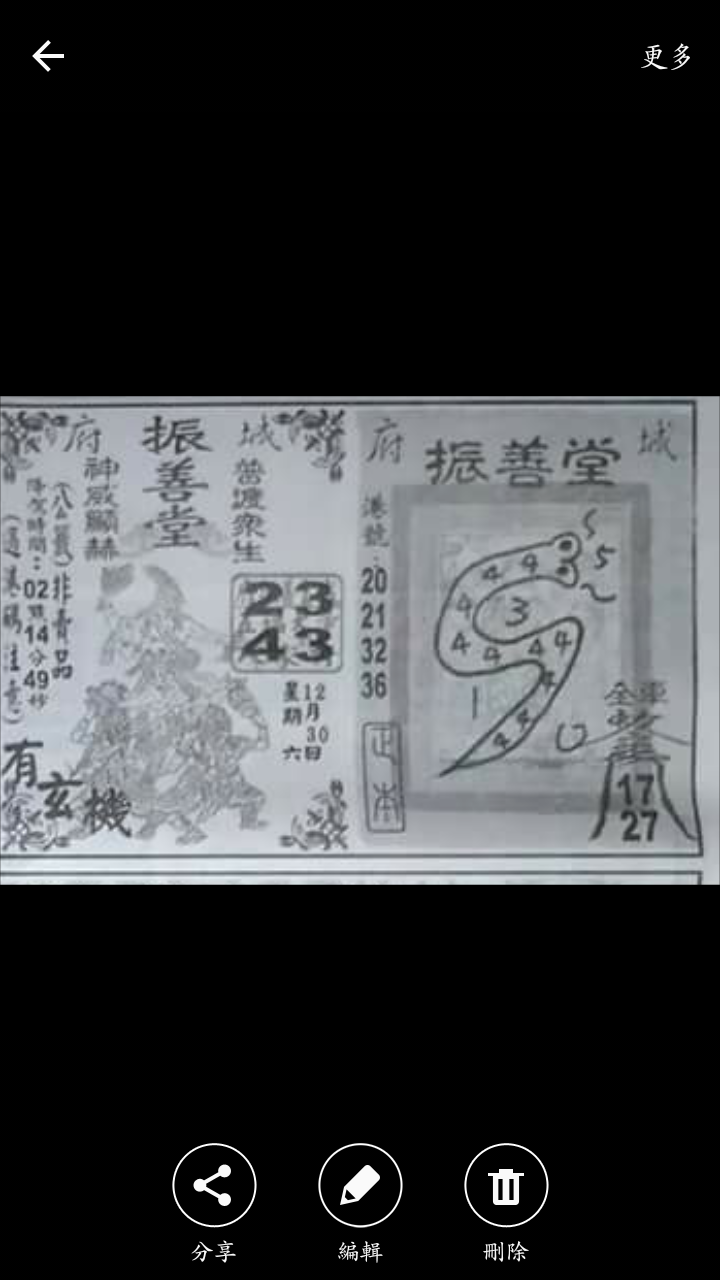 更多
府城
振善堂
神威顯赫
普渡眾生
(八公籤)非賣品
降駕時間：02點14分49秒
23
43
12月30日
星期六
有玄機
府城
振善堂
港號：
20
21
32
36
5
4 4 4 4 4 4 4 4 4 4
3
1
全車
17
27
分享
編輯
刪除